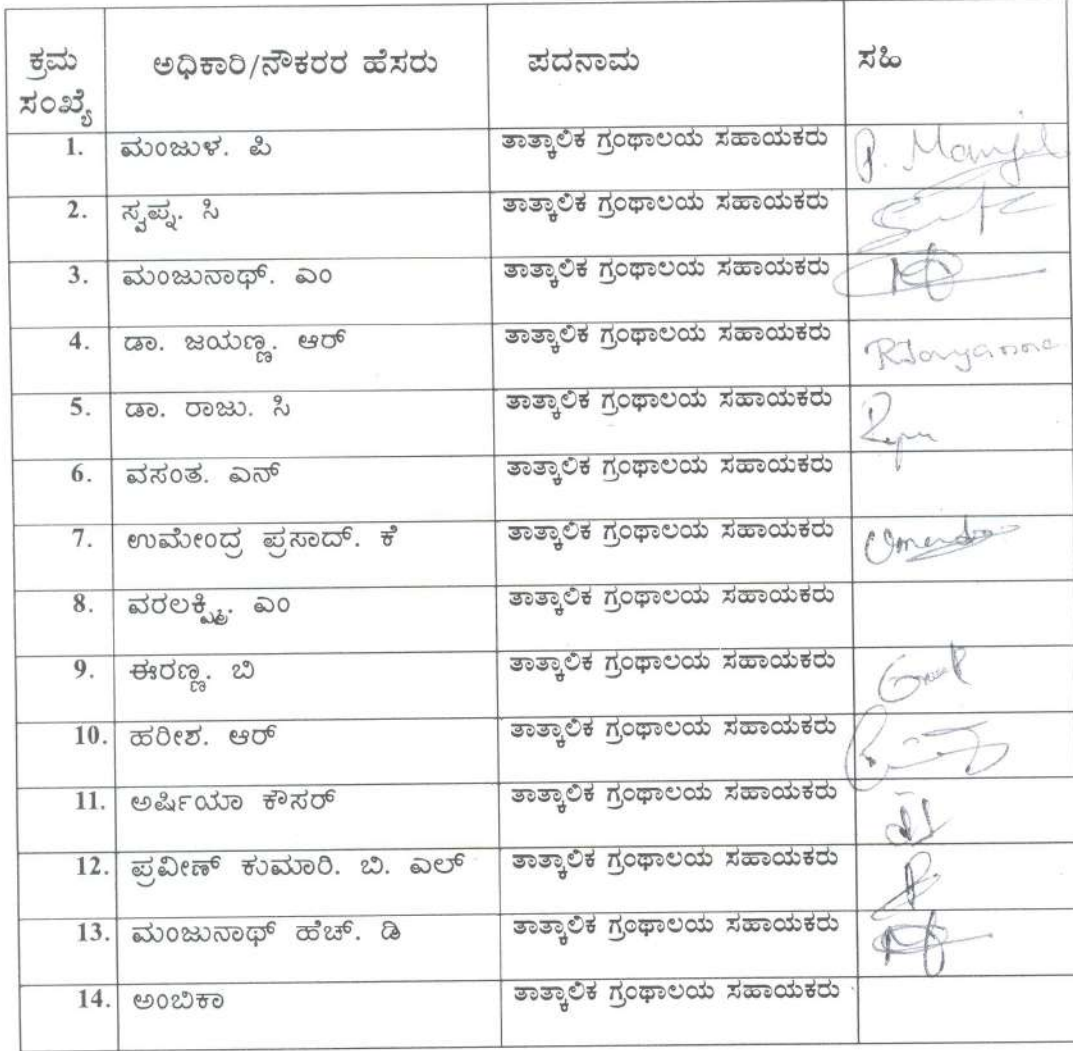 ಕ್ರಮ ಸಂಖ್ಯೆ ಅಧಿಕಾರಿ/ನೌಕರರ ಹೆಸರು ಪದನಾಮ ಸಹಿ
1. ಮಂಜುಳ. ಪಿ ತಾತ್ಕಾಲಿಕ ಗ್ರಂಥಾಲಯ ಸಹಾಯಕರು P. Manjul
2. ಸ್ವಪ್ನ. ಸಿ ತಾತ್ಕಾಲಿಕ ಗ್ರಂಥಾಲಯ ಸಹಾಯಕರು
3. ಮಂಜುನಾಥ್. ಎಂ ತಾತ್ಕಾಲಿಕ ಗ್ರಂಥಾಲಯ ಸಹಾಯಕರು
4. ಡಾ. ಜಯಣ್ಣ. ಆರ್ ತಾತ್ಕಾಲಿಕ ಗ್ರಂಥಾಲಯ ಸಹಾಯಕರು RJayanna
5. ಡಾ. ರಾಜು. ಸಿ ತಾತ್ಕಾಲಿಕ ಗ್ರಂಥಾಲಯ ಸಹಾಯಕರು
6. ವಸಂತ. ಎನ್ ತಾತ್ಕಾಲಿಕ ಗ್ರಂಥಾಲಯ ಸಹಾಯಕರು
7. ಉಮೇಂದ್ರ ಪ್ರಸಾದ್. ಕೆ ತಾತ್ಕಾಲಿಕ ಗ್ರಂಥಾಲಯ ಸಹಾಯಕರು
8. ವರಲಕ್ಷ್ಮಿ. ಎಂ ತಾತ್ಕಾಲಿಕ ಗ್ರಂಥಾಲಯ ಸಹಾಯಕರು
9. ಈರಣ್ಣ. ಬಿ ತಾತ್ಕಾಲಿಕ ಗ್ರಂಥಾಲಯ ಸಹಾಯಕರು
10. ಹರೀಶ. ಆರ್ ತಾತ್ಕಾಲಿಕ ಗ್ರಂಥಾಲಯ ಸಹಾಯಕರು
11. ಅರ್ಷಿಯಾ ಕೌಸರ್ ತಾತ್ಕಾಲಿಕ ಗ್ರಂಥಾಲಯ ಸಹಾಯಕರು
12. ಪ್ರವೀಣ್ ಕುಮಾರಿ. ಬಿ. ಎಲ್ ತಾತ್ಕಾಲಿಕ ಗ್ರಂಥಾಲಯ ಸಹಾಯಕರು
13. ಮಂಜುನಾಥ್ ಹೆಚ್. ಡಿ ತಾತ್ಕಾಲಿಕ ಗ್ರಂಥಾಲಯ ಸಹಾಯಕರು
14. ಅಂಬಿಕಾ ತಾತ್ಕಾಲಿಕ ಗ್ರಂಥಾಲಯ ಸಹಾಯಕರು